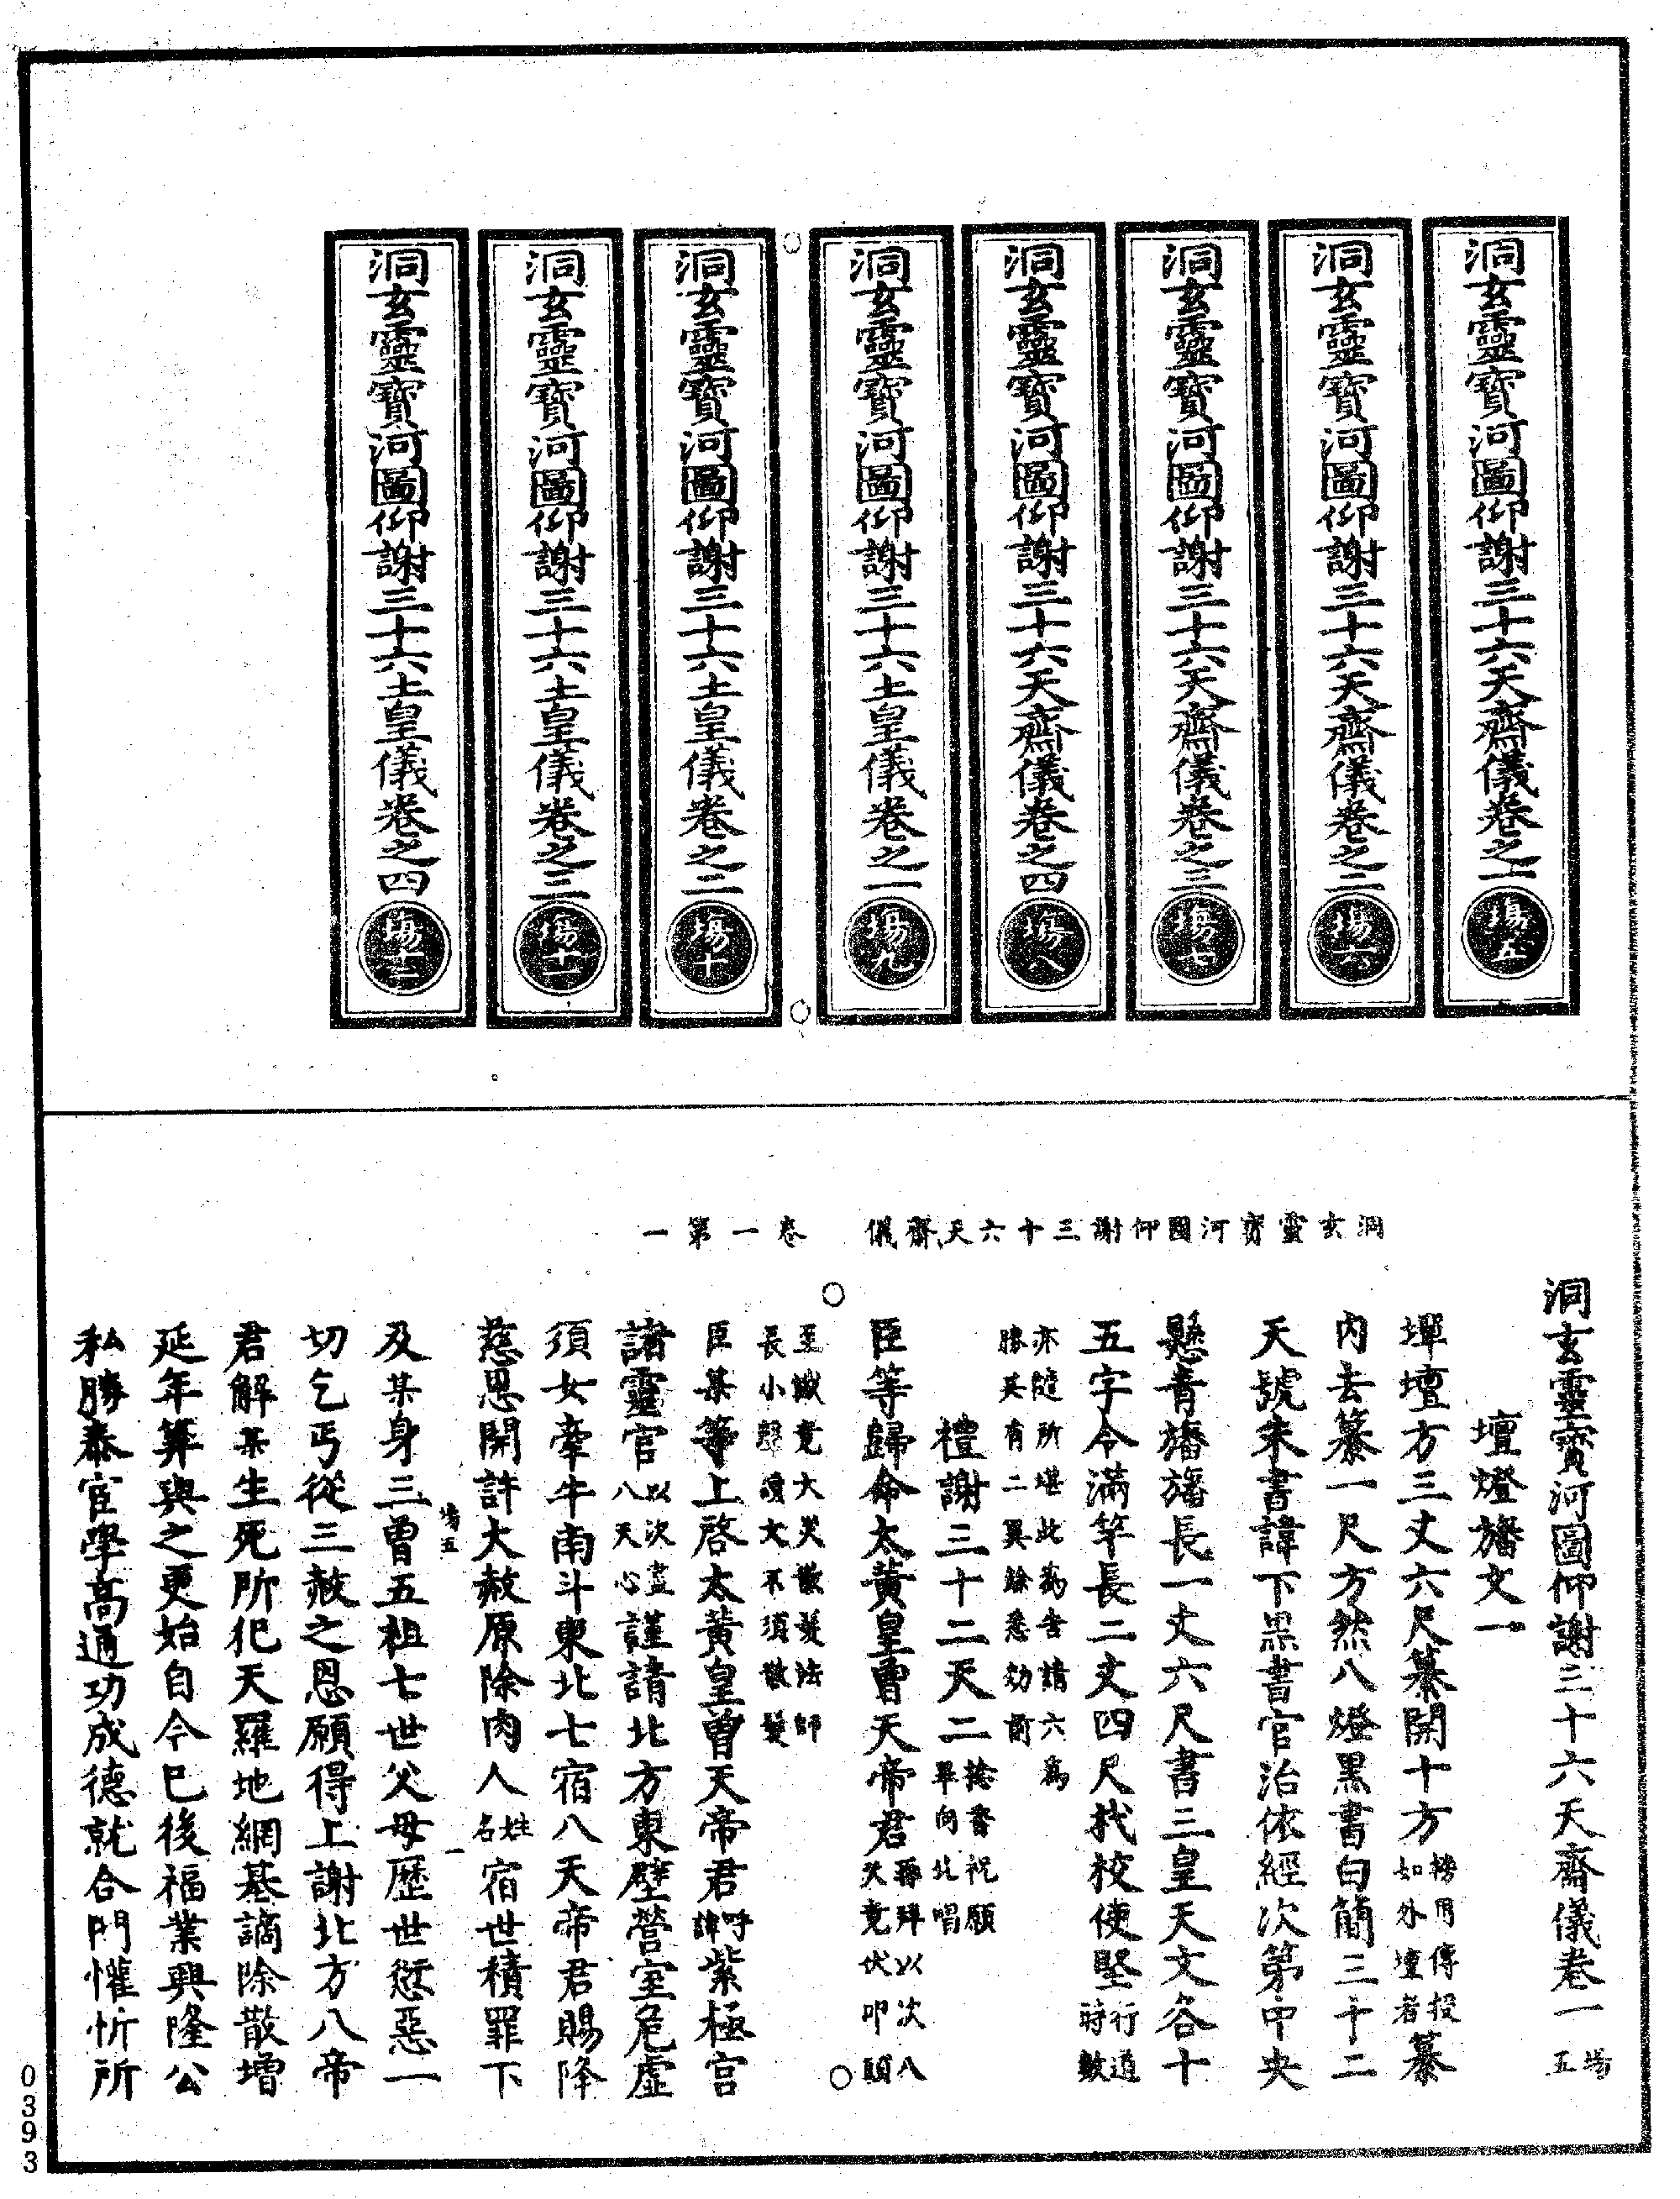 洞玄靈寶河圖仰謝三十六天齋儀卷之一 場五
洞玄靈寶河圖仰謝三十六天齋儀卷之二 場六
洞玄靈寶河圖仰謝三十六天齋儀卷之三 場七
洞玄靈寶河圖仰謝三十六天齋儀卷之四 場八
洞玄靈寶河圖仰謝三十六土皇儀卷之一 場九
洞玄靈寶河圖仰謝三十六土皇儀卷之二 場十
洞玄靈寶河圖仰謝三十六土皇儀卷之三 場十一
洞玄靈寶河圖仰謝三十六土皇儀卷之四 場十二
洞玄靈寶河圖仰謝三十六天齋儀 卷一第一
洞玄靈寶河圖仰謝三十六天齋儀卷一 場五
壇燈旛文一
墠壇方三丈六尺纂開十方榜用傳投如外壇者纂
內去纂一尺方然八燈黑書白簡三十二
天號朱書諱下黑書官治依經次第中央
懸青旛旛長一丈六尺書三皇天文各十
五字令滿竿長二丈四尺找校使堅行道時數
亦隨所堪此為吉請六為勝其有二異餘悉効前
禮謝三十二天二捻香祝願畢向北唱
臣等歸命太黃皇曾天帝君再拜以次八天竟伏叩頭
至誠竟大哭散髮法師長小歸讀文不須散髮
臣某等上啓太黃皇曾天帝君呼諱紫極宮
諸靈官以次盡八天心謹請北方東壁營室危虛
須女牽牛南斗東北七宿八天帝君賜降
慈恩開許大赦原除肉人姓名宿世積罪下
場五 一
及某身三曾五祖七世父母歷世愆惡一
切乞丐從三赦之恩願得上謝北方八帝
君解某生死所犯天羅地網基謫除散增
延年筭與之更始自今已後福業興隆公
私勝泰宦學高通功成德就合門懽忻所
0393